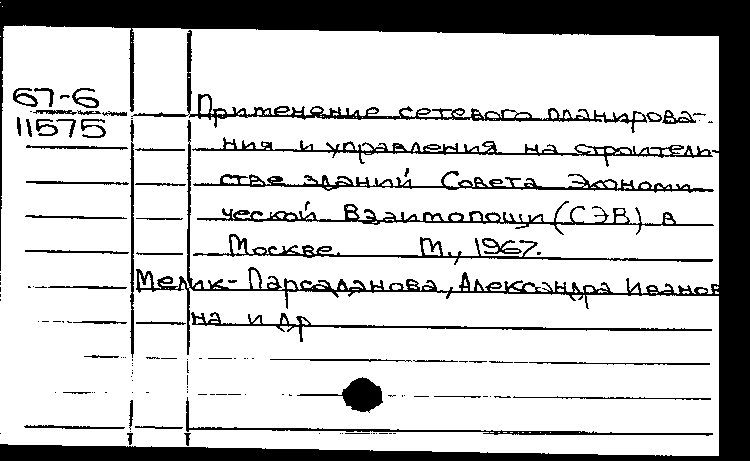 67-6
11575
Применение сетевого планирова-
ния и управления на строитель-
стве зданий Совета Экономи
ческой Взаимопощи (СЭВ) в
Москве. М., 1967.
Мелик-Парсаданова, Александра Иванов
на и др